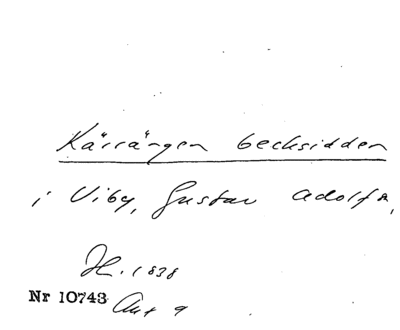 Kärrängen becksidden
i Viby, Gustav Adolfs,
H. 1838
Nr 10743 Akt 9